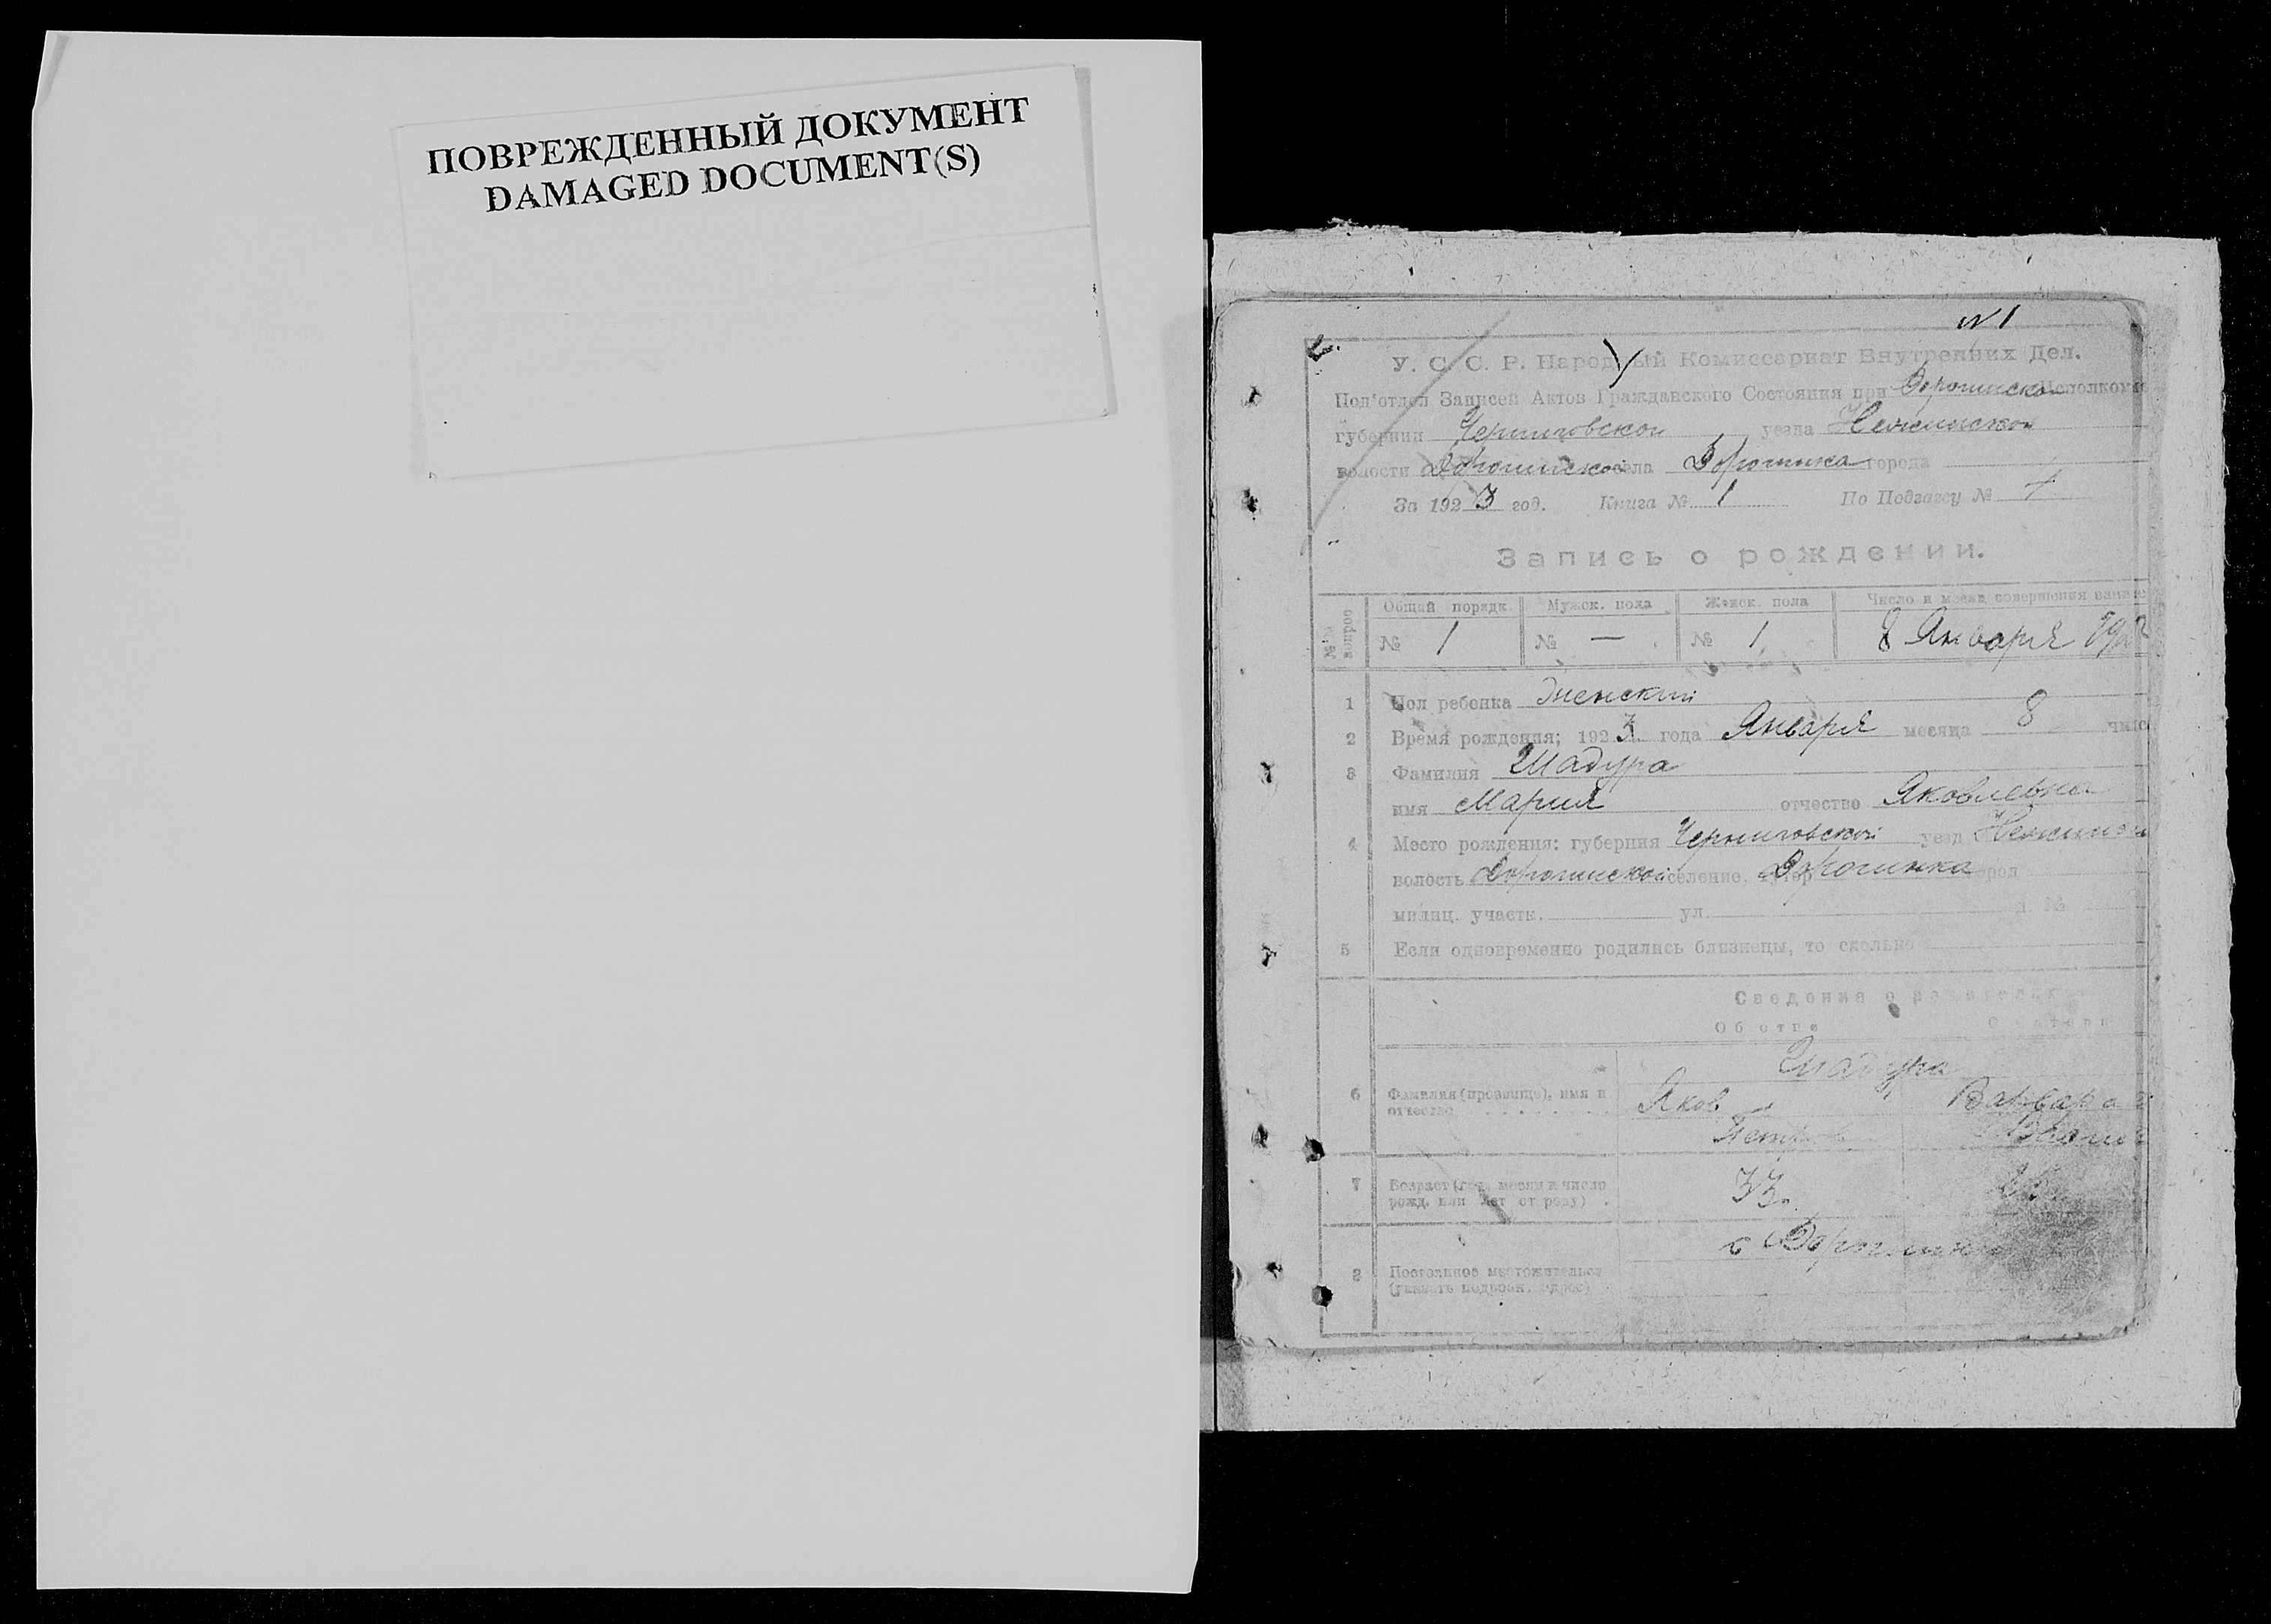 ПОВРЕЖДЕННЫЙ ДОКУМЕНТ
DAMAGED DOCUMENT(S)
N 1
У. С. С. Р. Народный Комиссариат Внутренних Дел.
Под'отдел Записей Актов Гражданского Состояния при Дорогинском Исполкоме
губернии Черниговской уезда Нежинского
волости Дорогинской села Дорогинка города
За 1923 год. Книга № 1 По Подзагсу №
Запись о рождении.
№№ вопрос Общий порядк. Мужск. пола Женск. пола Число и месяц совершения записи
№ 1 № — № 1 8 Января 192
1 Пол ребенка женский
2 Время рождения; 1923 года Января месяца 8 чис
3 Фамилия Шадура
имя Мария отчество Яковлевна
4 Место рождения: губерния Черниговской уезд Нежинск
волость Дорогинской селение, хутор Дорогинка город
милиц. участк. ул. д. №
5 Если одновременно родились близнецы, то сколько
Сведения о родителях
Об отце О матери
Шадура
6 Фамилия (прозвище), имя и Яков Варвара
отчество Петров
7 Возраст (год, месяц и число 33
рожд. или лет от роду)
с Дорогинка
8 Постоянное местожительст
(указать подробн. адрес)